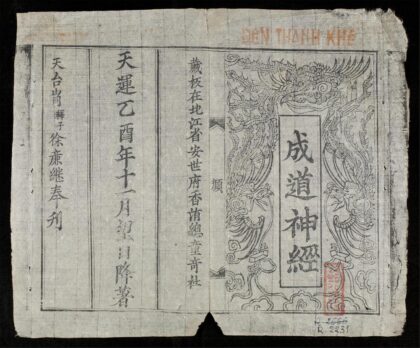 ĐỀN THANH KHÊ
成道神經
藏板在北江省安世府香䝨總童奇社
天運乙酉年十一月望日降著
天台肖釋子徐慶繼奉刊
R.2231